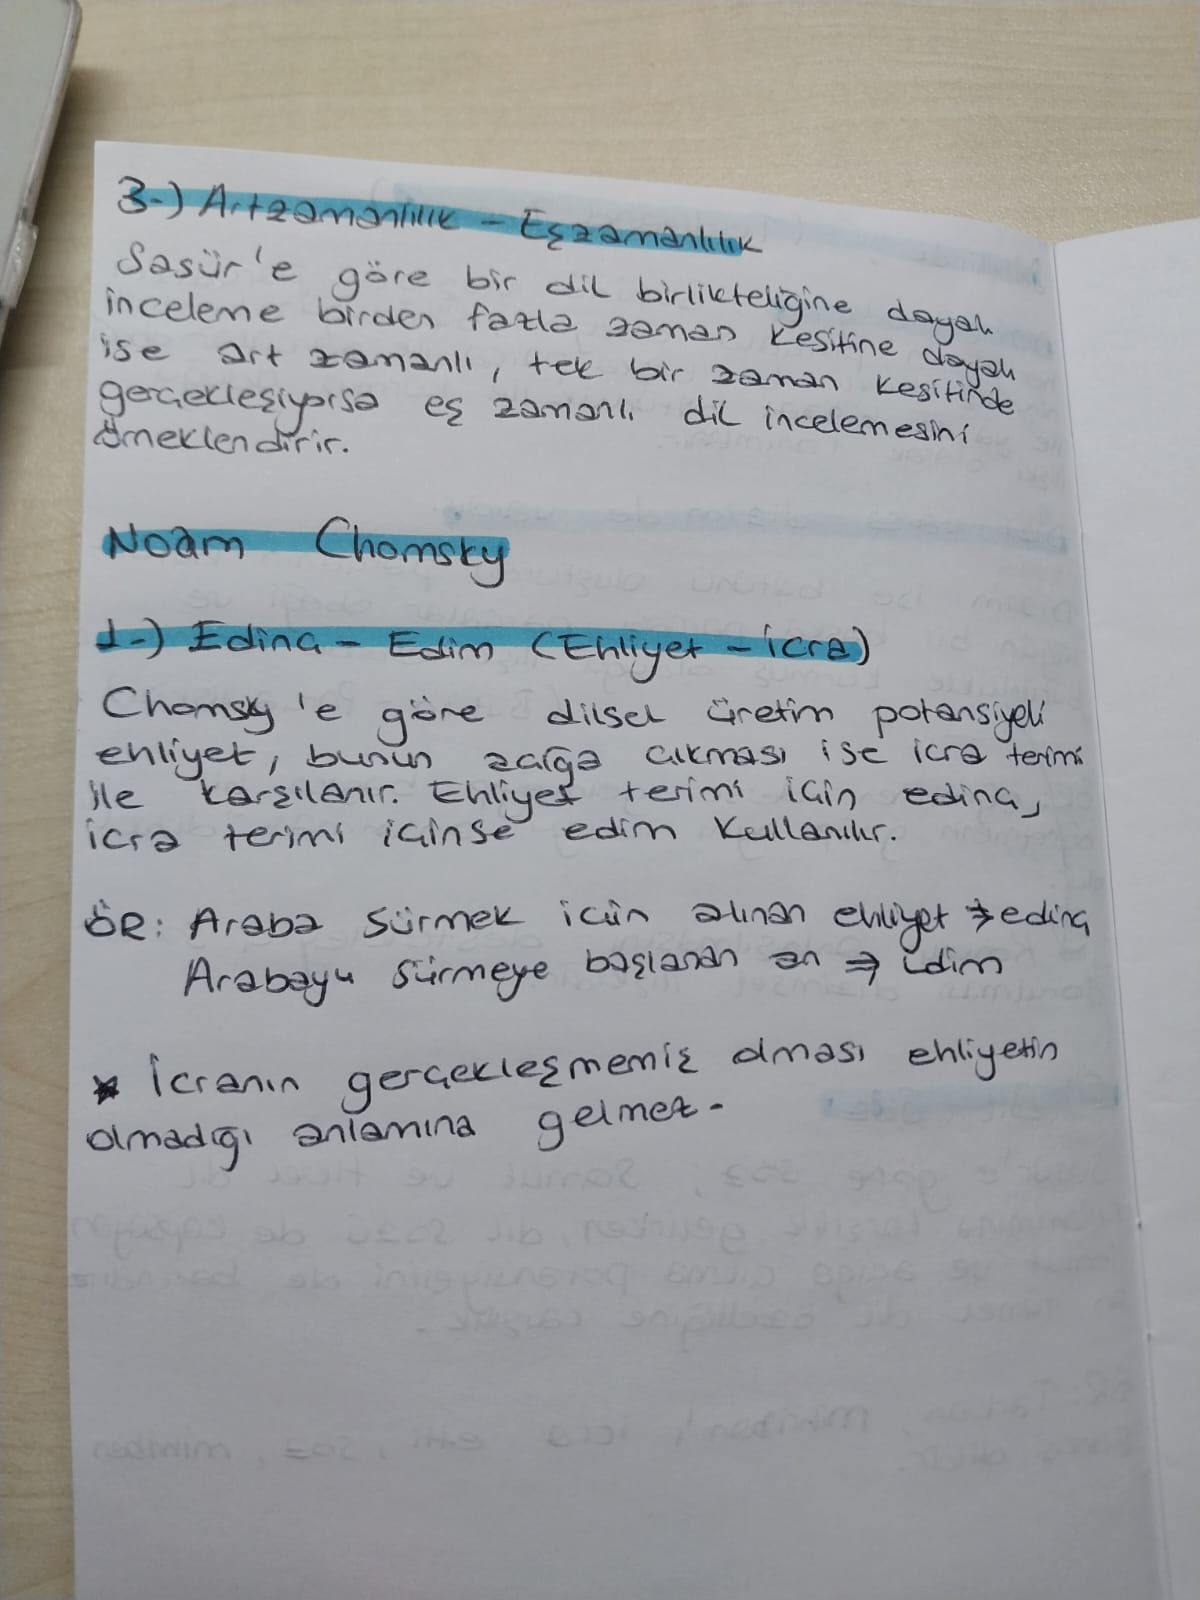 3-) Artzamanlılık - Eşzamanlılık
Sasür'e göre bir dil birlikteliğine dayalı
inceleme birden fazla zaman kesitine dayalı
ise art zamanlı, tek bir zaman kesitinde
gerçekleşiyorsa eş zamanlı dil incelemesini
örneklendirir.
Noam Chomsky
1-) Edinç - Edim (Ehliyet - İcra)
Chomsky'e göre dilsel üretim potansiyeli
ehliyet, bunun açığa çıkması ise icra terimi
ile karşılanır. Ehliyet terimi için edinç,
icra terimi içinse edim kullanılır.
ÖR: Araba sürmek için alınan ehliyet ⇒ edinç
Arabayı sürmeye başlanan an ⇒ idim
* İcranın gerçekleşmemiş olması ehliyetin
olmadığı anlamına gelmez.